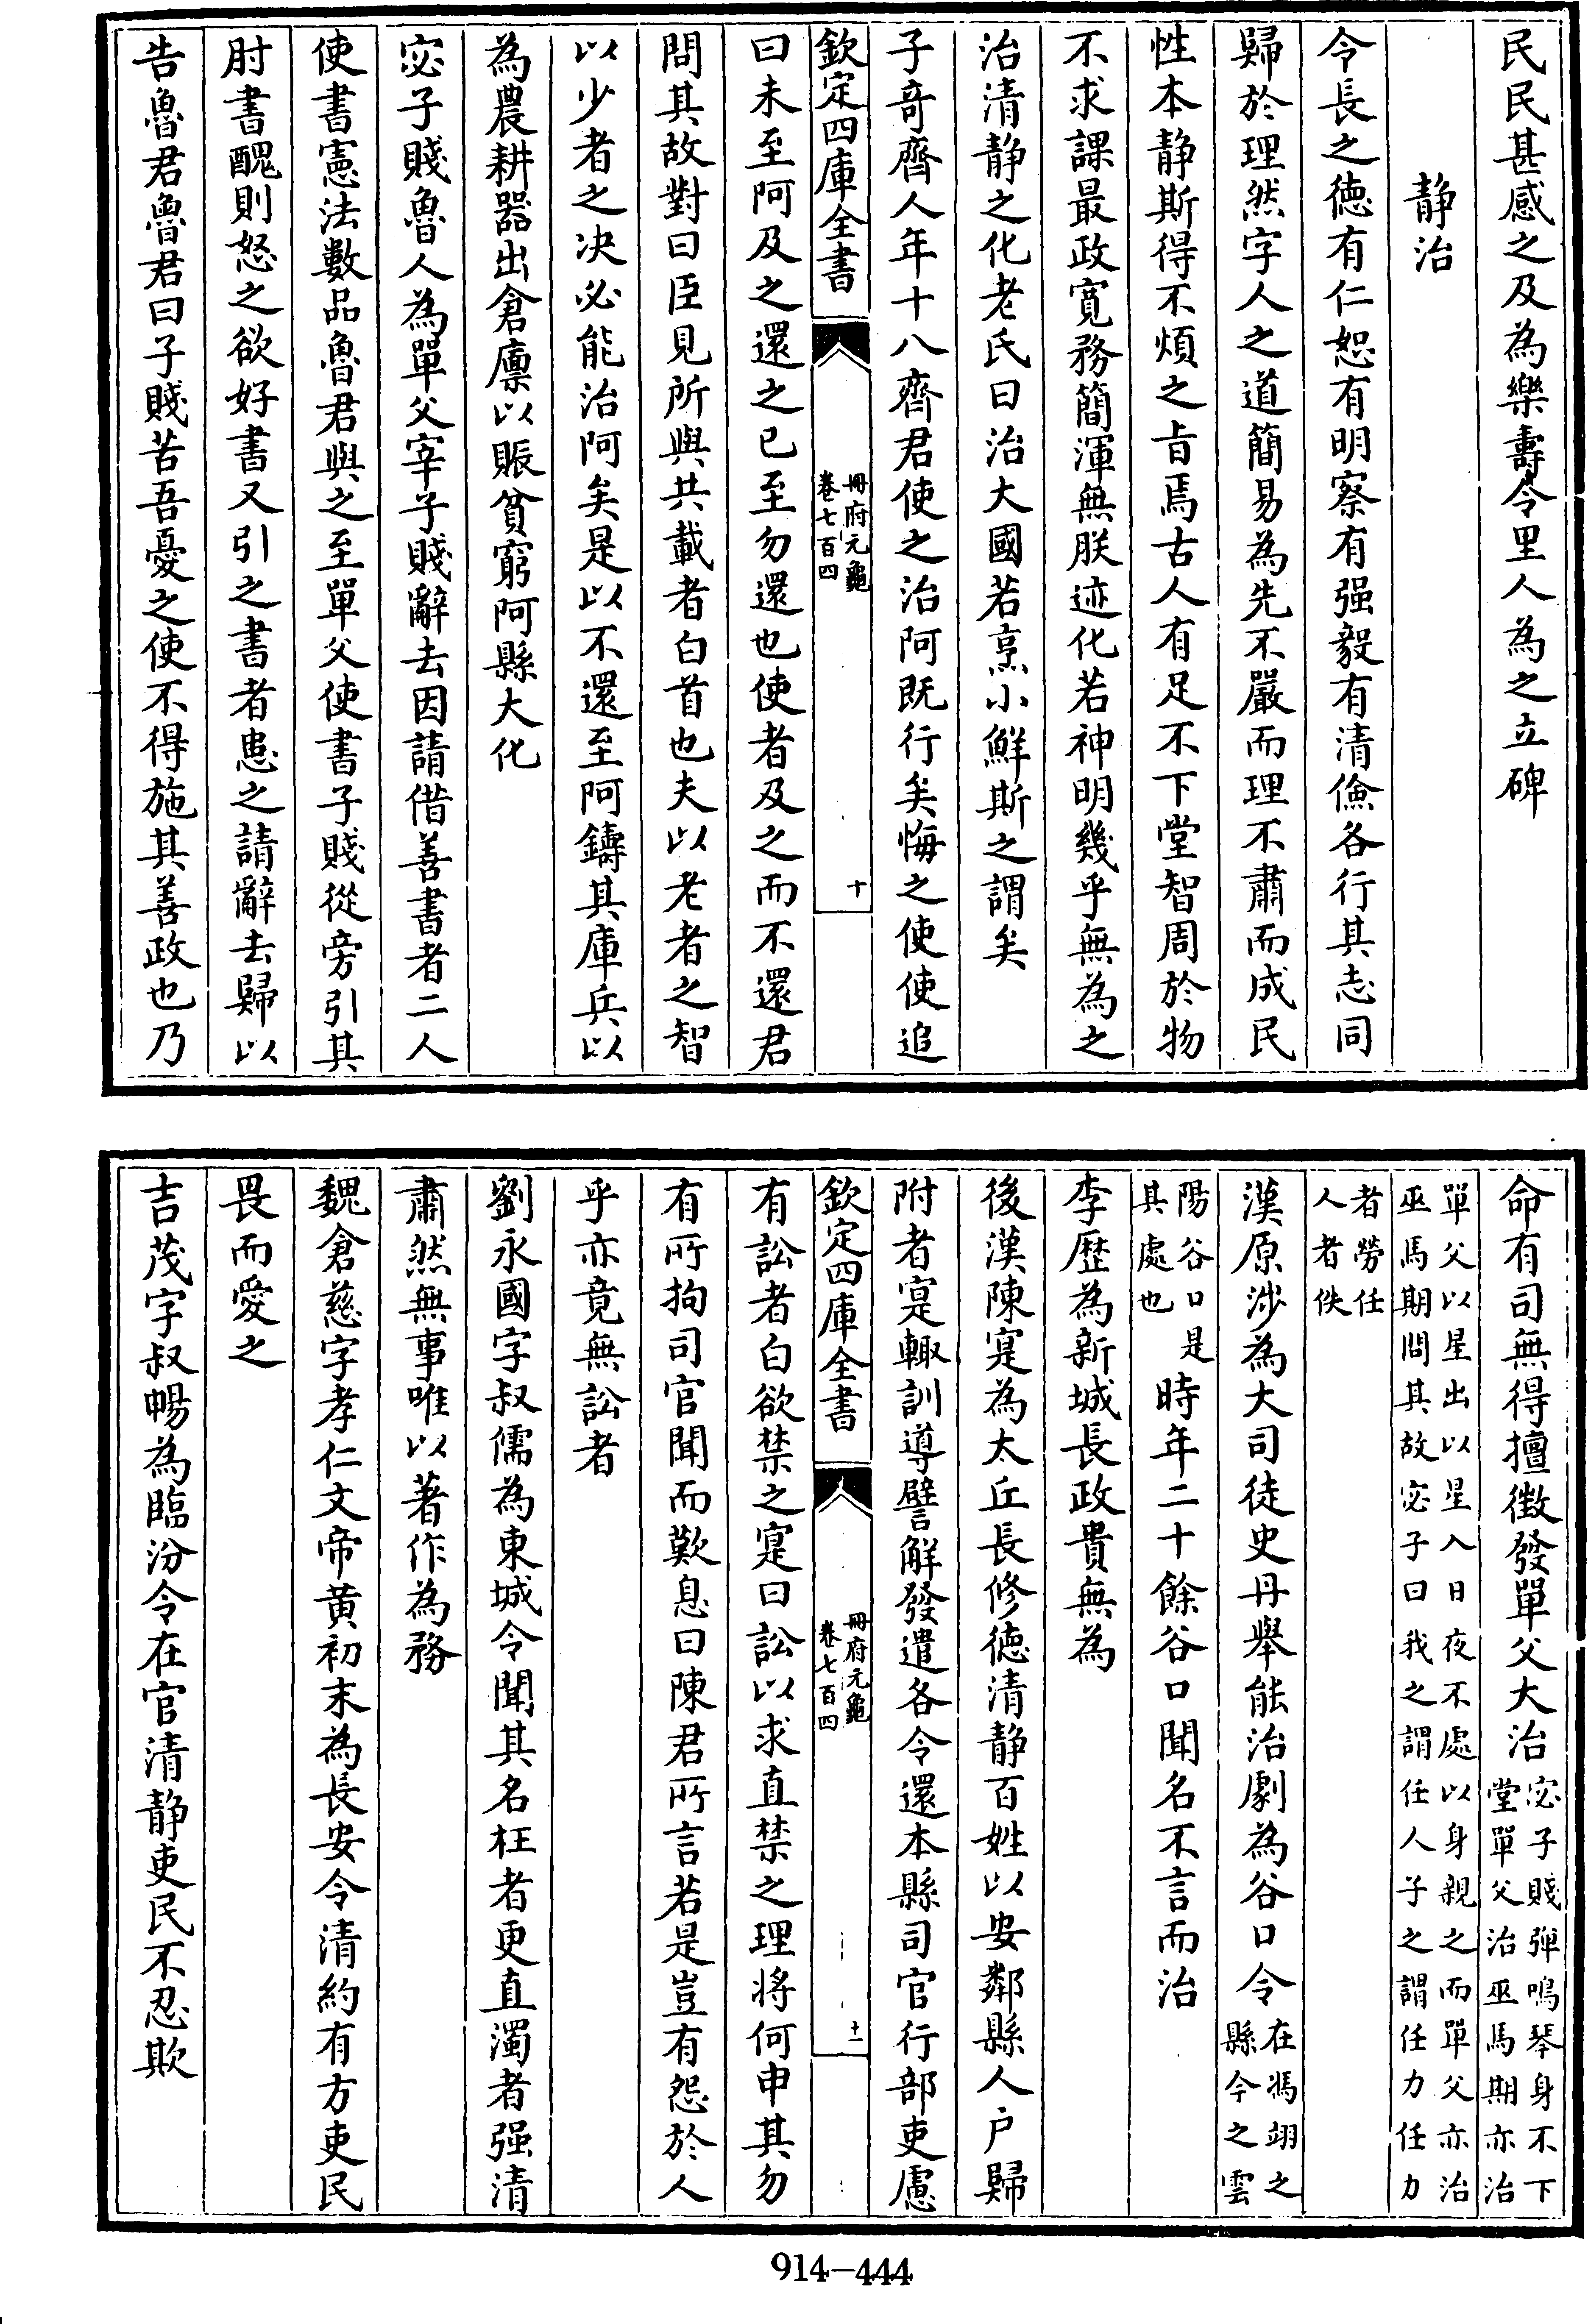 民民甚感之及為樂壽令里人為之立碑
静治
令長之徳有仁恕有明察有强毅有清儉各行其志同
歸於理然字人之道簡易為先不嚴而理不肅而成民
性本静斯得不煩之㫖焉古人有足不下堂智周於物
不求課最政寛務簡渾無朕迹化若神明幾乎無為之
治清静之化老氏曰治大國若烹小鮮斯之謂矣
子奇齊人年十八齊君使之治阿既行矣悔之使使追
欽定四庫全書
冊府元龜
卷七百四
十
曰未至阿及之還之已至勿還也使者及之而不還君
問其故對曰臣見所與共載者白首也夫以老者之智
以少者之决必能治阿矣是以不還至阿鑄其庫兵以
為農耕器出倉廪以賑貧窮阿縣大化
宓子賤魯人為單父宰子賤辭去因請借善書者二人
使書憲法數品魯君與之至單父使書子賤從旁引其
肘書醜則怒之欲好書又引之書者患之請辭去歸以
告魯君魯君曰子賤苦吾憂之使不得施其善政也乃
命有司無得擅徴發單父大治宓子賤彈鳴琴身不下
堂單父治巫馬期亦治
單父以星出以星入日夜不處以身親之而單父亦治
巫馬期問其故宓子曰我之謂任人子之謂任力任力
者勞任
人者佚
漢原渉為大司徒史丹舉能治劇為谷口令在馮翊之
縣今之雲
陽谷口是
其處也
時年二十餘谷口聞名不言而治
李歴為新城長政貴無為
後漢陳寔為太丘長修徳清静百姓以安鄰縣人户歸
附者寔輙訓導譬解發遣各令還本縣司官行部吏慮
欽定四庫全書
冊府元龜
卷七百四
十一
有訟者白欲禁之寔曰訟以求直禁之理將何申其勿
有所拘司官聞而歎息曰陳君所言若是豈有怨於人
乎亦竟無訟者
劉永國字叔儒為東城令聞其名枉者更直濁者强清
肅然無事唯以著作為務
魏倉慈字孝仁文帝黄初末為長安令清約有方吏民
畏而愛之
吉茂字叔暢為臨汾令在官清静吏民不忍欺
914-444